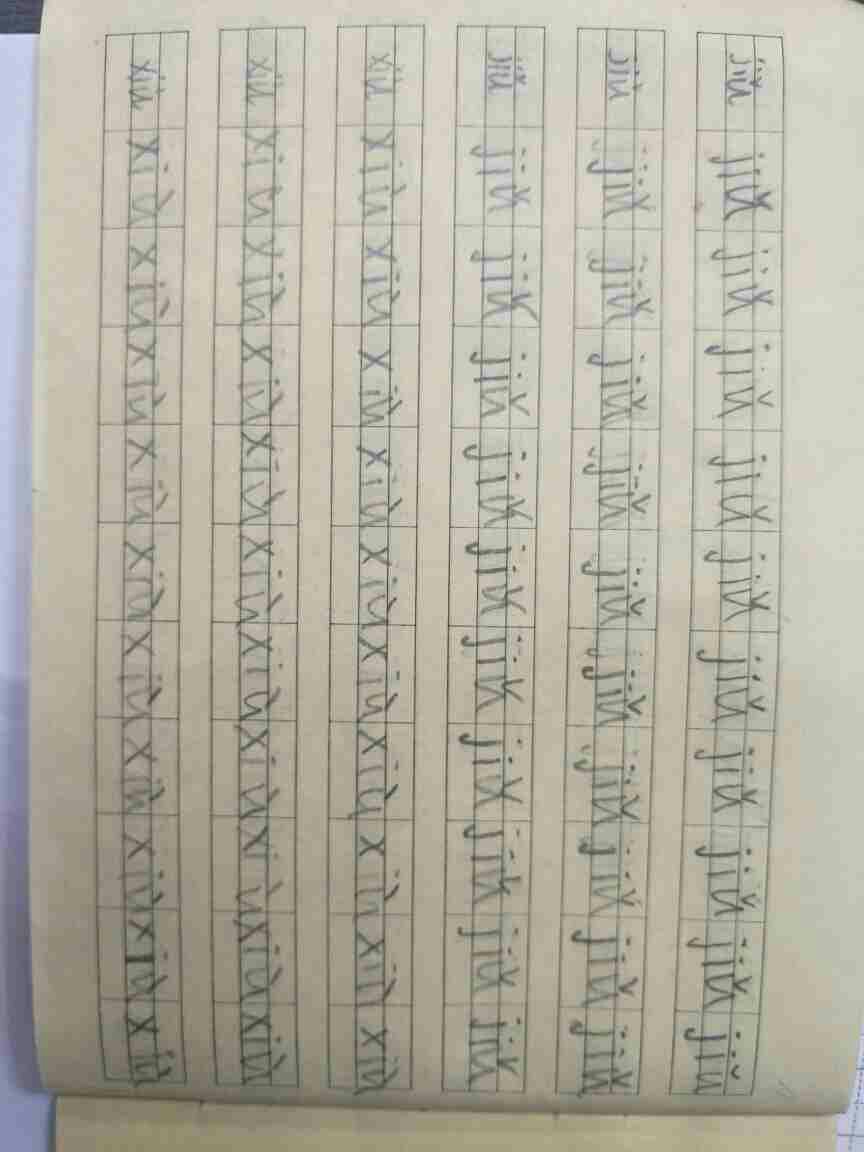 jiǔ jiǔ jiǔ jiǔ jiǔ jiǔ jiǔ jiǔ jiǔ jiǔ jiǔ
jiǔ jiǔ jiǔ jiǔ jiǔ jiǔ jiǔ jiǔ jiǔ jiǔ jiǔ
jiǔ jiǔ jiǔ jiǔ jiǔ jiǔ jiǔ jiǔ jiǔ jiǔ jiǔ
xiù xiù xiù xiù xiù xiù xiù xiù xiù xiù xiù
xiù xiù xiù xiù xiù xiù xiù xiù xiù xiù xiù
xiù xiù xiù xiù xiù xiù xiù xiù xiù xiù xiù